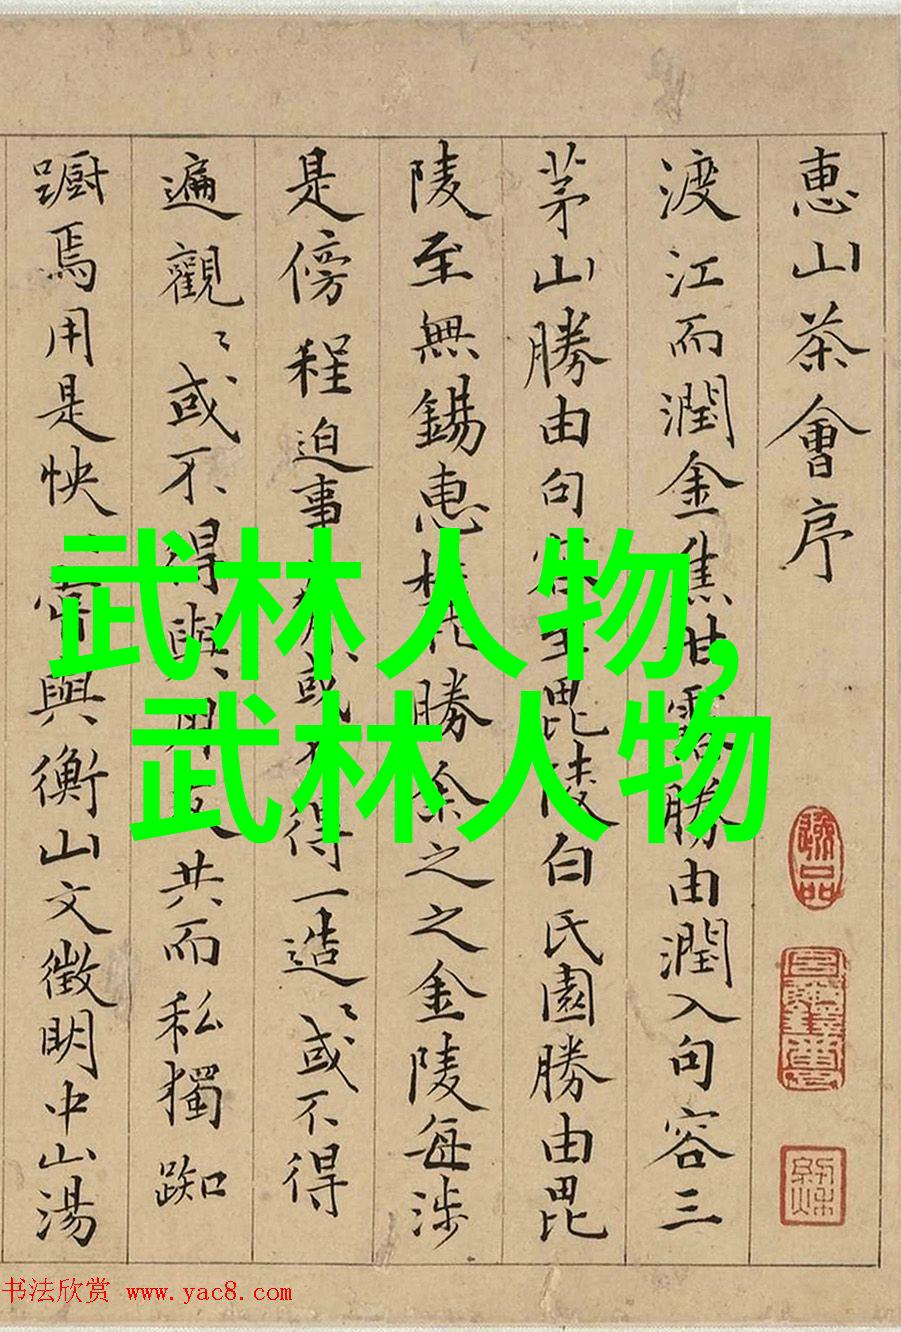 恵山茶會序
渡江而潤金焦甘露勝由潤入句容三
茅山勝由句容至毘陵白氏園勝由毘
陵至無錫惠勝余之之金陵每涉
是傍程迫事或不得一造〻或不得
遍觀〻或不得與共而私獨踟
躕焉用是怏嘗與衡山文徵明中山湯
逸品
武林人物,
武林人物
书法欣赏 www.yac8.com